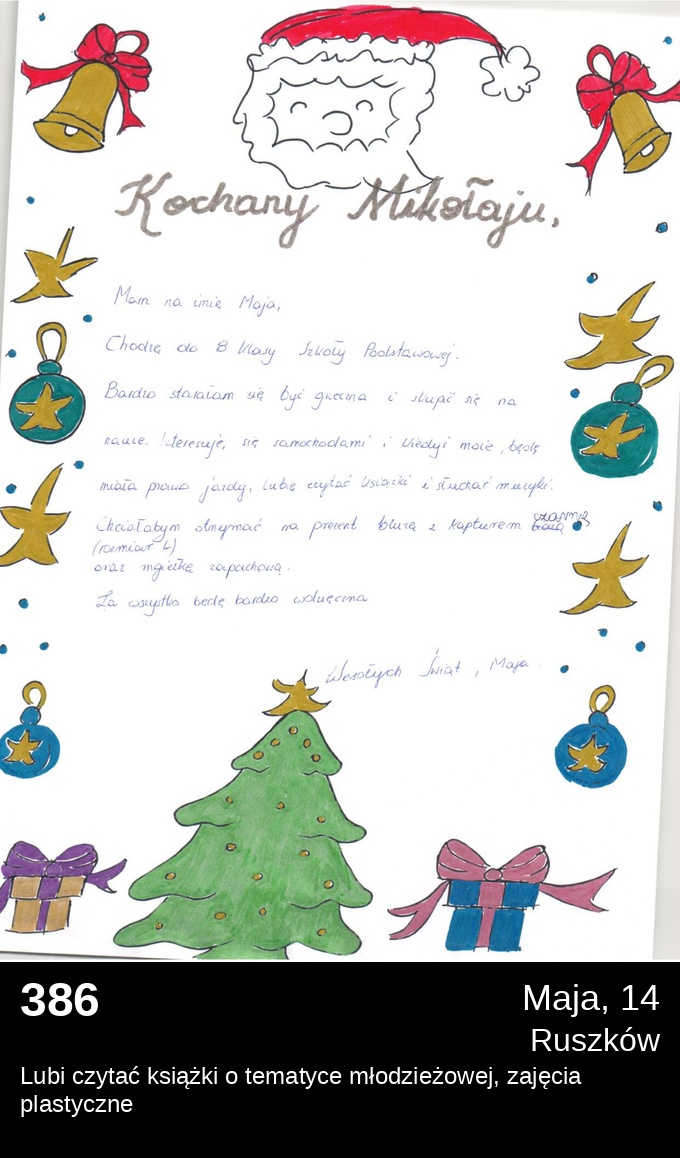 Kochany Mikołaju,
Mam na imię Maja,
Chodzę do 8 klasy Szkoły Podstawowej.
Bardzo starałam się być grzeczna i skupić się na
nauce. Interesuję, się samochodami i kiedyś może, będę
miała prawo jazdy, Lubię czytać książki i słuchać muzyki.
Chciałabym otrzymać na prezent bluzę z kapturem czarną
(rozmiar L)
oraz mgiełkę zapachową.
Za wszystko będę bardzo wdzięczna
Wesołych Świąt, Maja.
386
Maja, 14
Ruszków
Lubi czytać książki o tematyce młodzieżowej, zajęcia
plastyczne